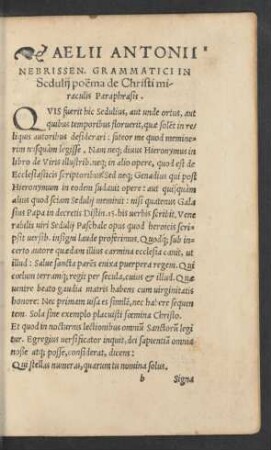 AELII ANTONII
NEBRISSEN. GRAMMATICI IN
Sedulij poëma de Christi mi-
raculis Paraphrasis.
QVIS fuerit hic Sedulius, aut unde ortus, aut
quibus temporibus floruerit, quæ solẽt in re
liquis autoribus desiderari: fateor me quod memine-
rim nusquàm legisse. Nam neq; diuus Hieronymus in
libro de Viris illustrib. neq; in alio opere, quod est de
Ecclesiasticis scriptoribus: sed neq; Genadius qui post
Hieronymum in eodem sudauit opere: aut quisquàm
alius quod sciam Sedulij meminit: nisi quatenus Gela
sius Papa in decretis Distin. 15. his uerbis scribit, Vene
rabilis uiri Sedulij Paschale opus quod heroicis scri-
psit uersib. insigni laude proferimus. Quodq; sub in-
certo autore quædam illius carmina ecclesia canit, ut
illud: Salue sancta parẽs enixa puerpera regem. Qui
cœlum terramq; regit per secula, cuius & illud. Quæ
uentre beato gaudia matris habens cum uirginitatis
honore: Nec primam uisa es similẽ, nec habere sequen
tem. Sola sine exemplo placuisti fœmina Christo.
Et quod in nocturnis lectionibus omniũ Sanctorũ legi
tur. Egregius uersificator inquit, dei sapientiã omnia
nosse atq; posse, considerat, dicens:
Qui stellas numeras, quarum tu nomina solus.
b Signa